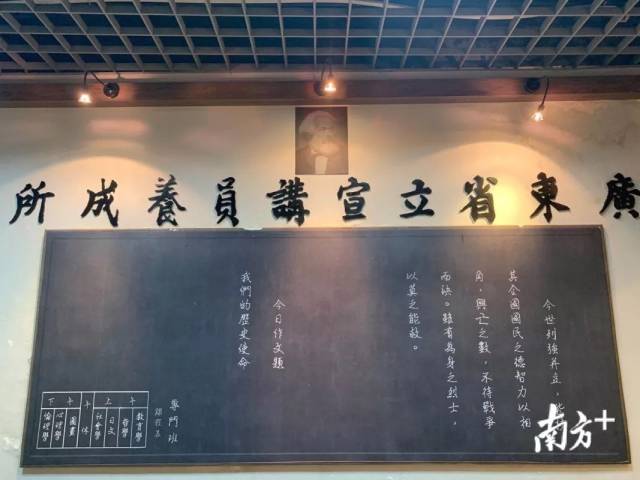 廣東省立宣講員養成所
今世列強并立，
其全國國民之德智力以相
角，興亡之數，不待戰爭
而決。雖有為身之烈士，
以莫之能救。
今日作文題
我們的歷史使命
專門班
課程表
上午
教育學
哲學
日文
社會學
午休
下午
圖畫
心理學
倫理學
南方+